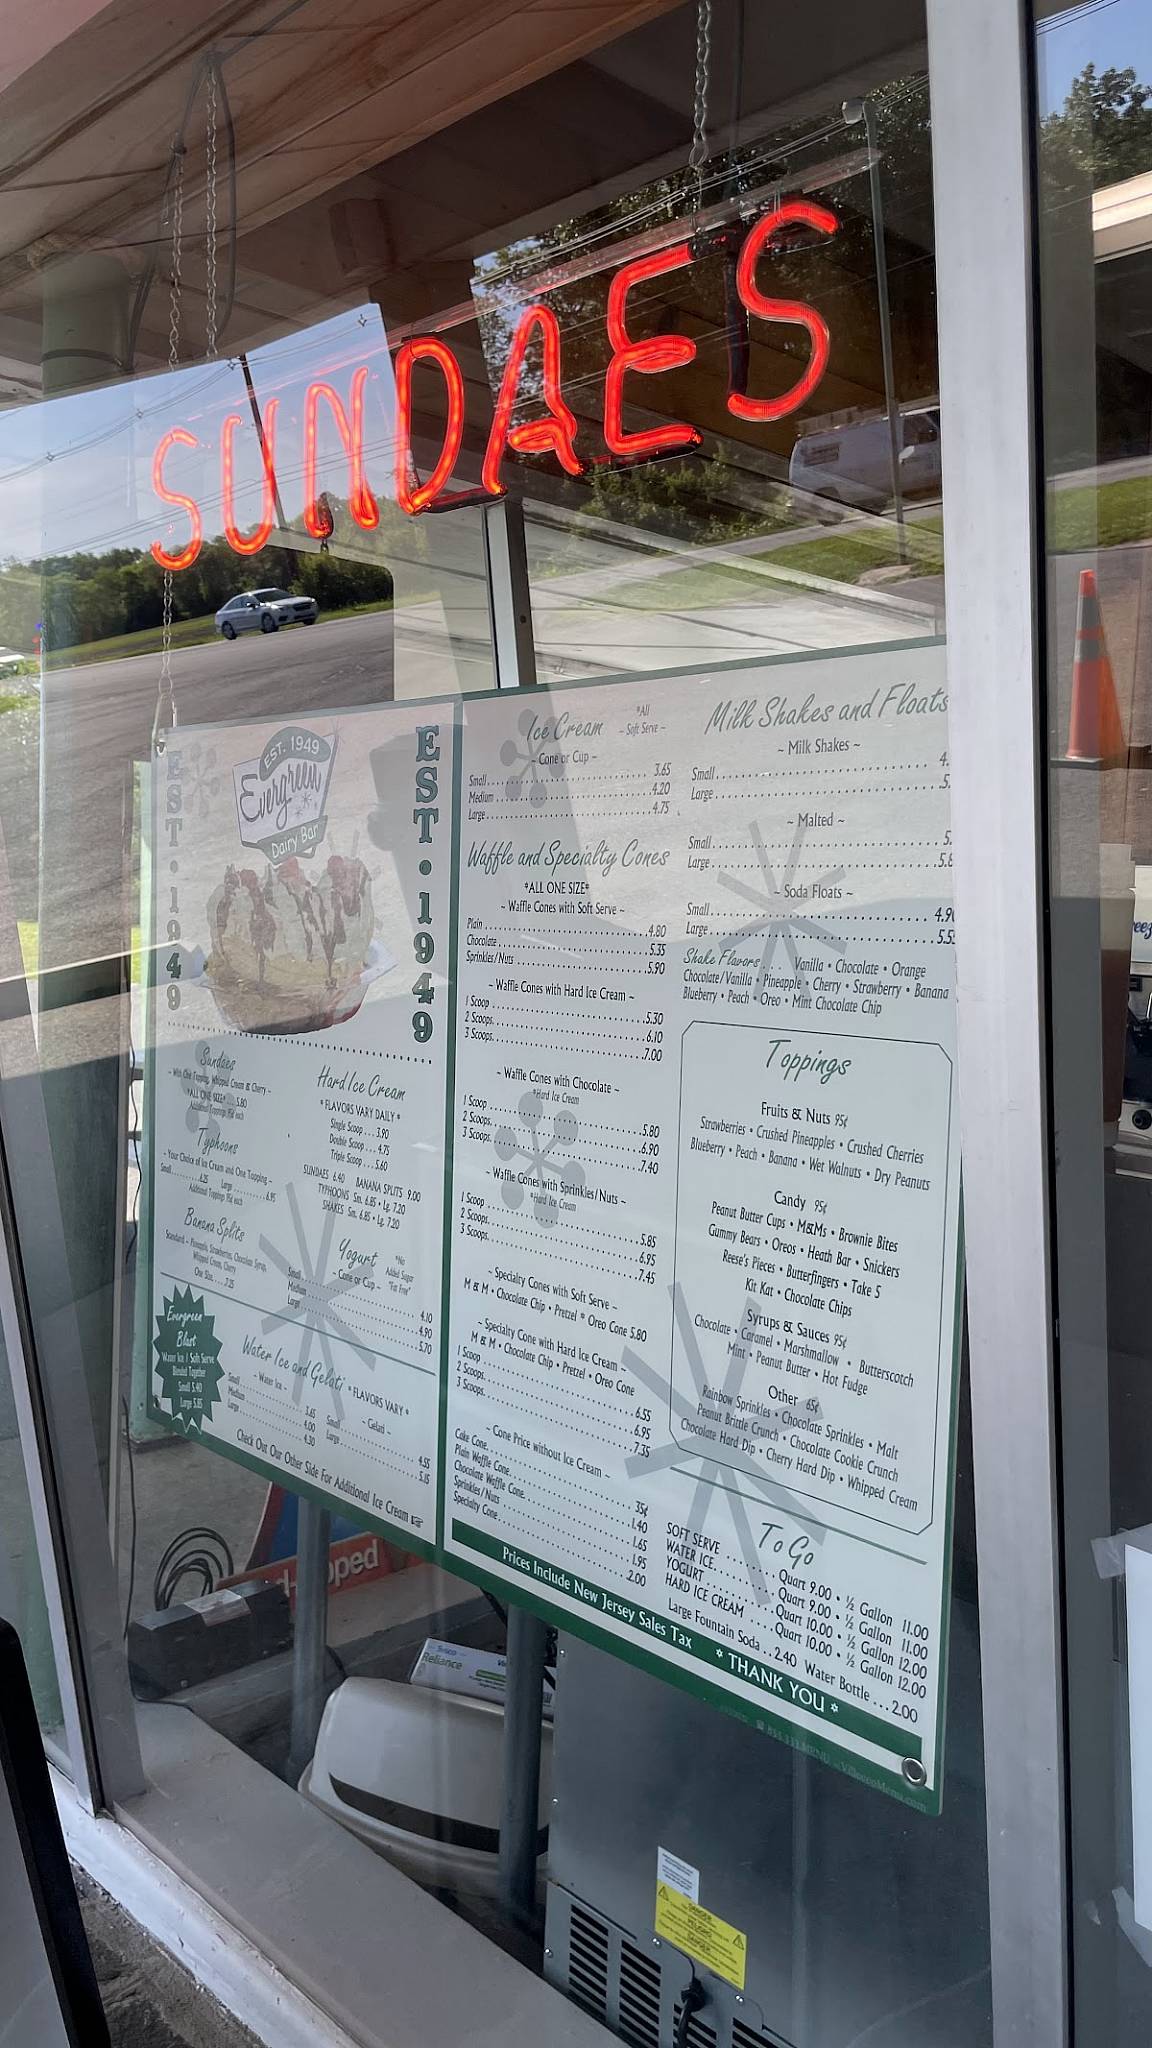 SUNDAES
EST. 1949
Evergreen
Dairy Bar
EST • 1949
EST • 1949
Sundaes
~ With One Topping, Whipped Cream & Cherry ~
*ALL ONE SIZE* .... 5.80
Additional Toppings 95¢ each
Typhoons
~ Your Choice of Ice Cream and One Topping ~
Small ........ 6.25 Large ........ 6.95
Additional Toppings 95¢ each
Banana Splits
Standard - Pineapple, Strawberries, Chocolate Syrup,
Whipped Cream, Cherry
One Size ... 7.25
Evergreen
Blast
Water Ice / Soft Serve
Blended Together
Small 5.40
Large 5.85
Hard Ice Cream
* FLAVORS VARY DAILY *
Single Scoop .... 3.90
Double Scoop .... 4.75
Triple Scoop .... 5.60
SUNDAES 6.40 BANANA SPLITS 9.00
TYPHOONS Sm. 6.85 • Lg. 7.20
SHAKES Sm. 6.85 • Lg. 7.20
Yogurt
*No
Added Sugar
*Fat Free*
~ Cone or Cup ~
Small ........ 4.10
Medium ........ 4.90
Large ........ 5.70
Water Ice and Gelati * FLAVORS VARY *
~ Water Ice ~
Small ........ 3.65
Medium ........ 4.00
Large ........ 4.30
~ Gelati ~
Small ........ 4.55
Large ........ 5.15
Check Out Our Other Side For Additional Ice Cream ☞
Ice Cream
*All
~ Soft Serve ~
~ Cone or Cup ~
Small ........ 3.65
Medium ........ 4.20
Large ........ 4.75
Waffle and Specialty Cones
*ALL ONE SIZE*
~ Waffle Cones with Soft Serve ~
Plain ........ 4.80
Chocolate ........ 5.35
Sprinkles/Nuts ........ 5.90
~ Waffle Cones with Hard Ice Cream ~
1 Scoop ........ 5.30
2 Scoops ........ 6.10
3 Scoops ........ 7.00
~ Waffle Cones with Chocolate ~
*Hard Ice Cream
1 Scoop ........ 5.80
2 Scoops ........ 6.90
3 Scoops ........ 7.40
~ Waffle Cones with Sprinkles/Nuts ~
*Hard Ice Cream
1 Scoop ........ 5.85
2 Scoops ........ 6.95
3 Scoops ........ 7.45
~ Specialty Cones with Soft Serve ~
M & M • Chocolate Chip • Pretzel * Oreo Cone 5.80
~ Specialty Cone with Hard Ice Cream ~
M & M • Chocolate Chip • Pretzel • Oreo Cone
1 Scoop ........ 6.55
2 Scoops ........ 6.95
3 Scoops ........ 7.35
~ Cone Price without Ice Cream ~
Cake Cone ........ 35¢
Plain Waffle Cone ........ 1.40
Chocolate Waffle Cone ........ 1.65
Sprinkles/Nuts ........ 1.95
Specialty Cone ........ 2.00
Milk Shakes and Floats
~ Milk Shakes ~
Small ........ 4.
Large ........ 5.
~ Malted ~
Small ........ 5.
Large ........ 5.
~ Soda Floats ~
Small ........ 4.9
Large ........ 5.5
Shake Flavors ... Vanilla • Chocolate • Orange
Chocolate/Vanilla • Pineapple • Cherry • Strawberry • Banana
Blueberry • Peach • Oreo • Mint Chocolate Chip
Toppings
Fruits & Nuts 95¢
Strawberries • Crushed Pineapples • Crushed Cherries
Blueberry • Peach • Banana • Wet Walnuts • Dry Peanuts
Candy 95¢
Peanut Butter Cups • M&Ms • Brownie Bites
Gummy Bears • Oreos • Heath Bar • Snickers
Reese's Pieces • Butterfingers • Take 5
Kit Kat • Chocolate Chips
Syrups & Sauces 95¢
Chocolate • Caramel • Marshmallow • Butterscotch
Mint • Peanut Butter • Hot Fudge
Other 65¢
Rainbow Sprinkles • Chocolate Sprinkles • Malt
Peanut Brittle Crunch • Chocolate Cookie Crunch
Chocolate Hard Dip • Cherry Hard Dip • Whipped Cream
To Go
SOFT SERVE ........ Quart 9.00 • ½ Gallon 11.00
WATER ICE ........ Quart 9.00 • ½ Gallon 11.00
YOGURT ........ Quart 10.00 • ½ Gallon 12.00
HARD ICE CREAM .... Quart 10.00 • ½ Gallon 12.00
Large Fountain Soda .. 2.40 Water Bottle ... 2.00
Prices Include New Jersey Sales Tax * THANK YOU *
Reliance